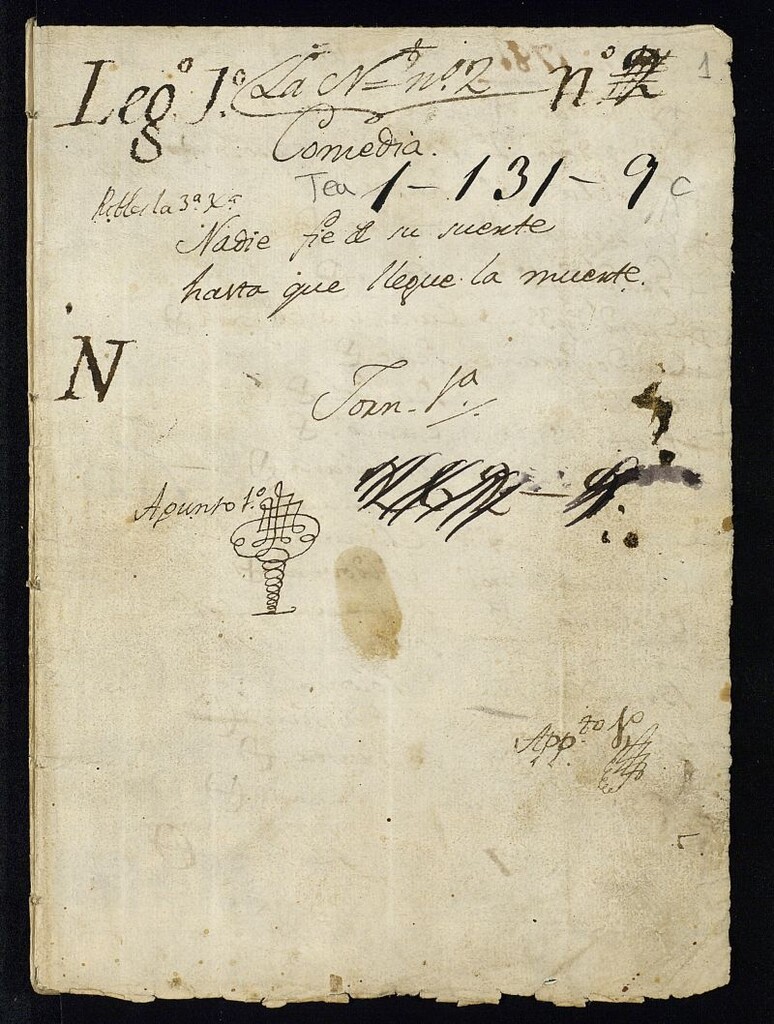 Leg.º 1.º La N nº. 2 nº 2
1
Comedia.
Tea 1-131-9 C
la 3ª
Nadie fie de su suerte
hasta que llegue la muerte.
N
Jorn. 1ª
Apunto 1º
App.to 1º